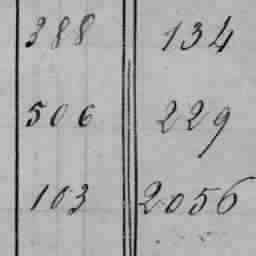 388 134
506 229
103 2056